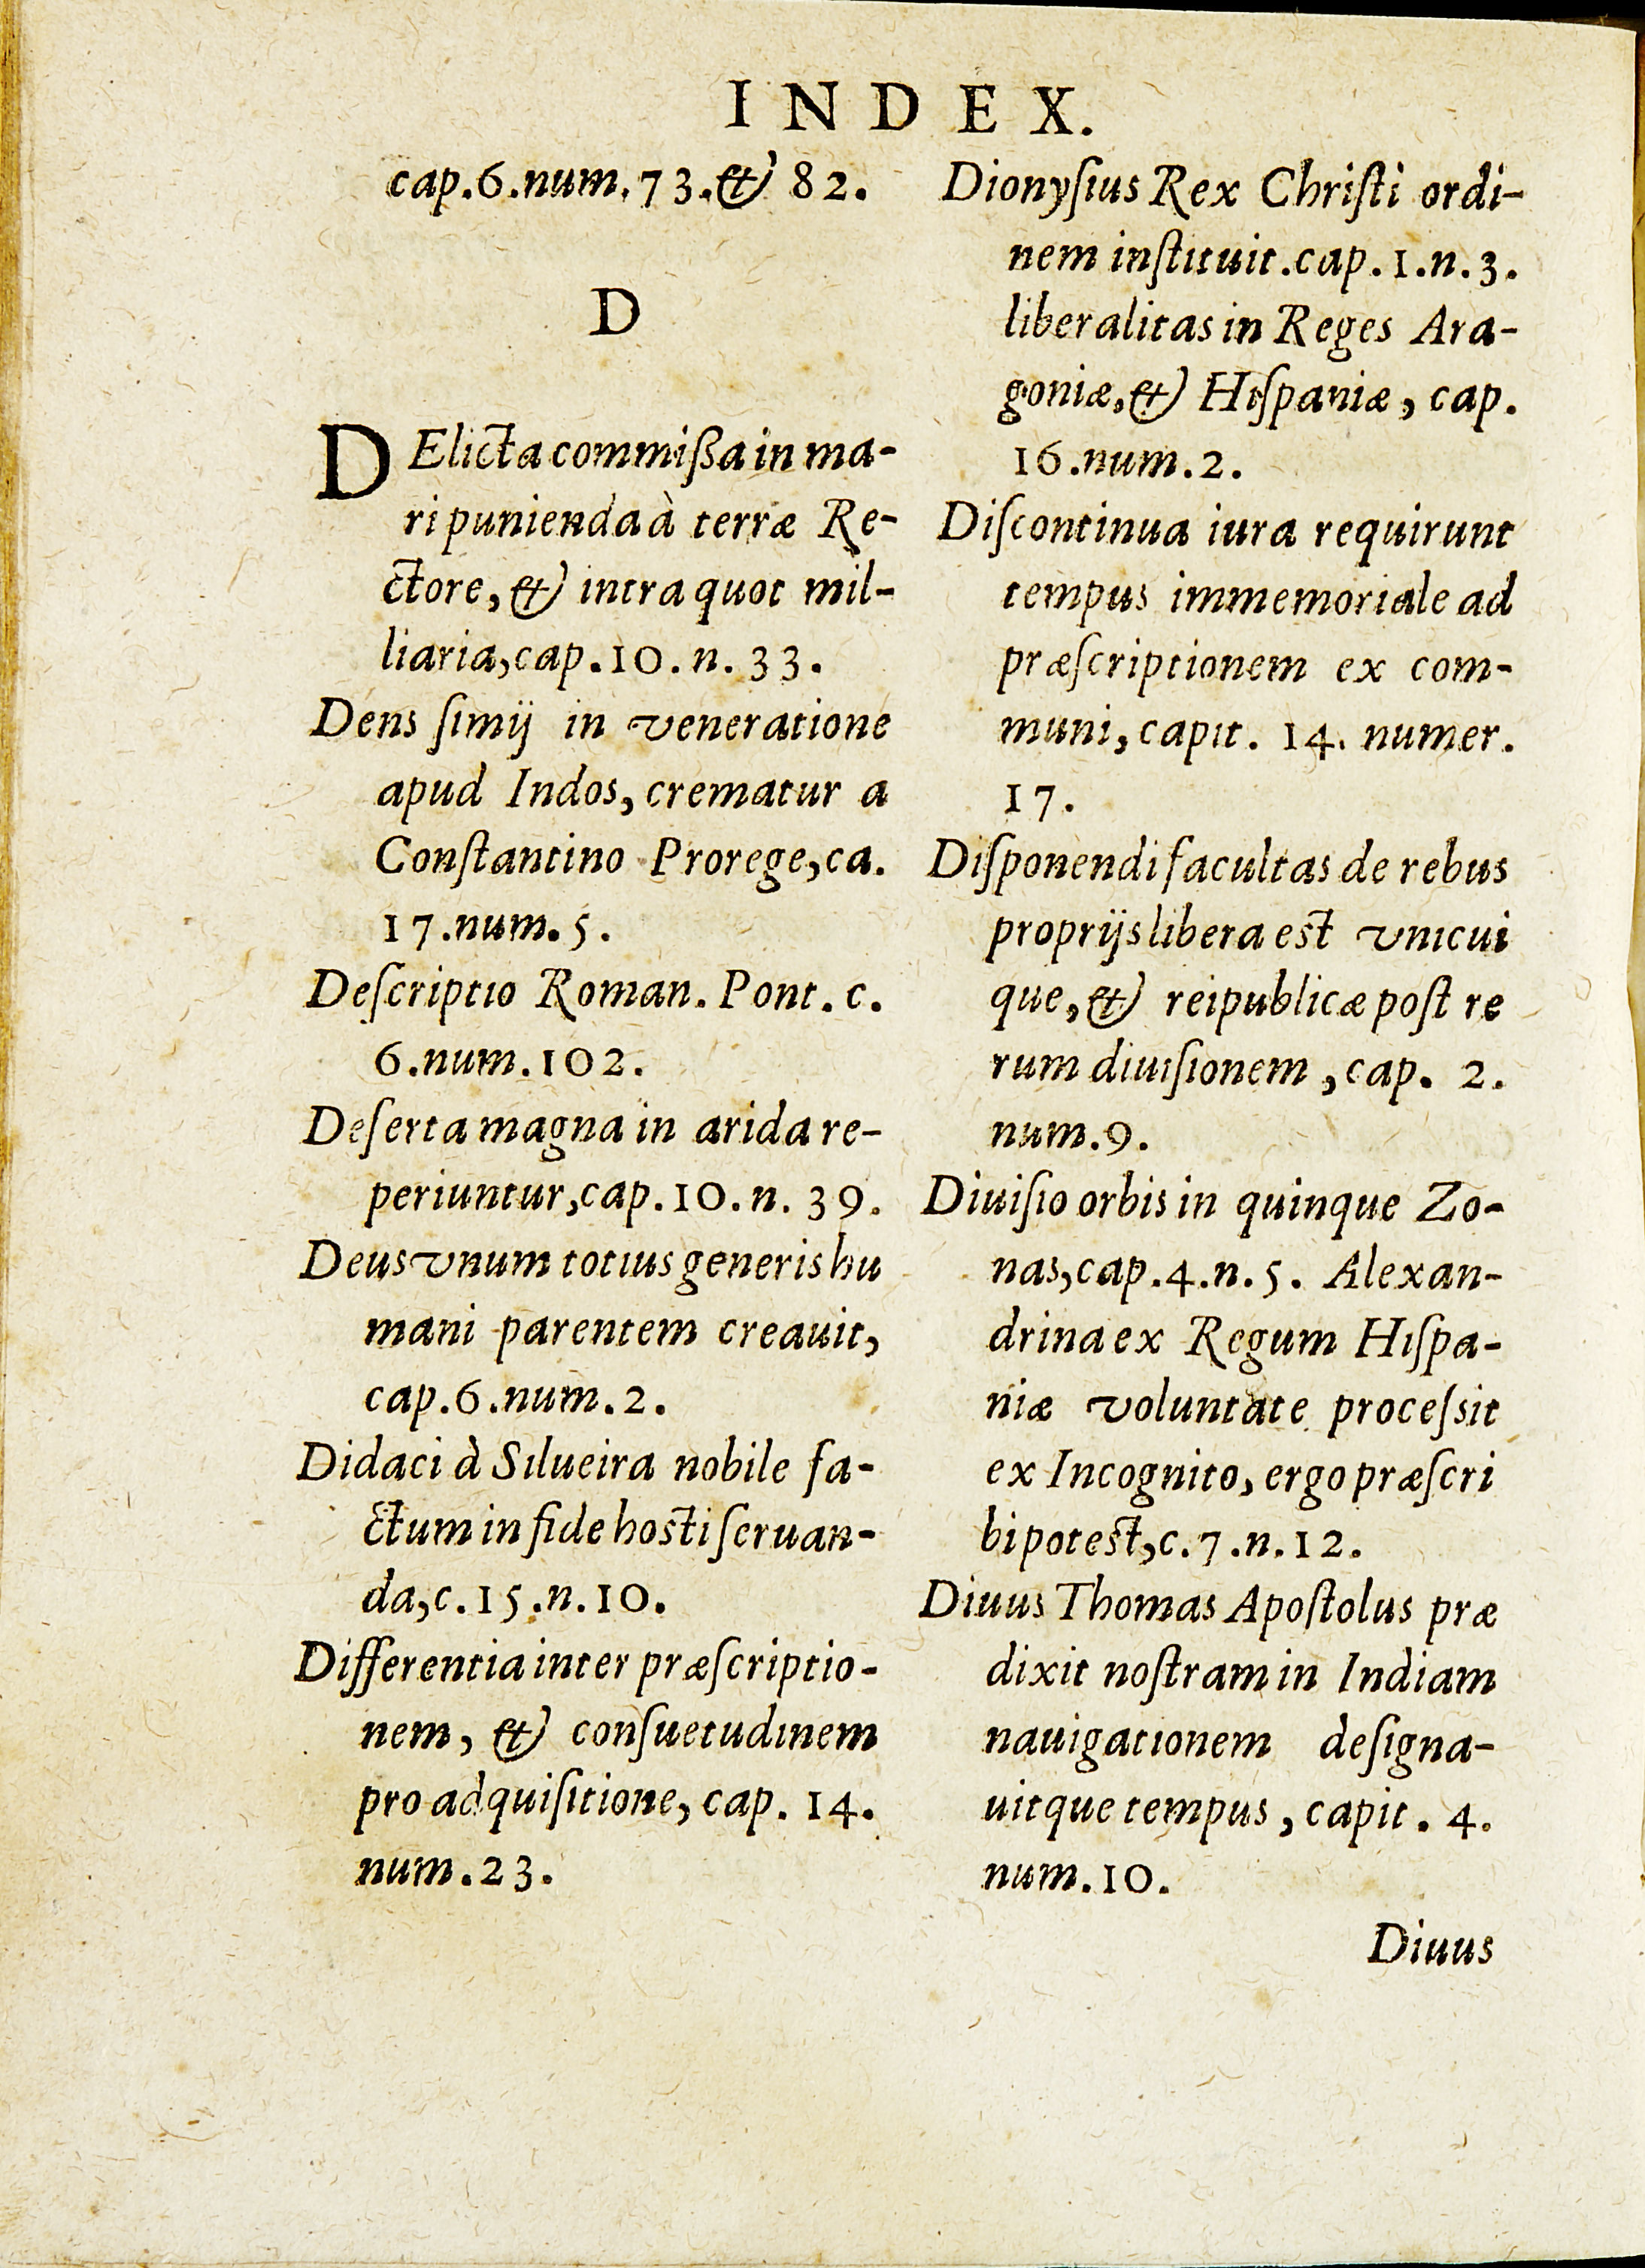 INDEX.
cap.6.num.73.& 82.
D
DElicta commißa in ma-
ri punienda à terræ Re-
ctore, & intra quot mil-
liaria, cap.10.n.33.
Dens ſimij in veneratione
apud Indos, crematur a
Conſtantino Prorege, ca.
17.num.5.
Deſcriptio Roman. Pont. c.
6.num.102.
Deſerta magna in arida re-
periuntur, cap.10.n.39.
Deus vnum totius generis hu
mani parentem creauit,
cap.6.num.2.
Didaci à Silueira nobile fa-
ctum in fide hosti ſeruan-
da, c.15.n.10.
Differentia inter præſcriptio-
nem, & conſuetudinem
pro adquiſitione, cap. 14.
num.23.
Dionyſius Rex Chriſti ordi-
nem inſtituit.cap.1.n.3.
liberalitas in Reges Ara-
goniæ, & Hiſpaniæ, cap.
16.num.2.
Diſcontinua iura requirunt
tempus immemoriale ad
præſcriptionem ex com-
muni, capit. 14. numer.
17.
Diſponendi facultas de rebus
proprijs libera est vnicui
que, & reipublicæ poſt re
rum diuiſionem, cap. 2.
num.9.
Diuiſio orbis in quinque Zo-
nas, cap.4.n.5. Alexan-
drina ex Regum Hiſpa-
niæ voluntate proceſsit
ex Incognito, ergo præſcri
bi potest, c.7.n.12.
Diuus Thomas Apoſtolus præ
dixit noſtram in Indiam
nauigationem deſigna-
uitque tempus, capit. 4.
num.10.
Diuus